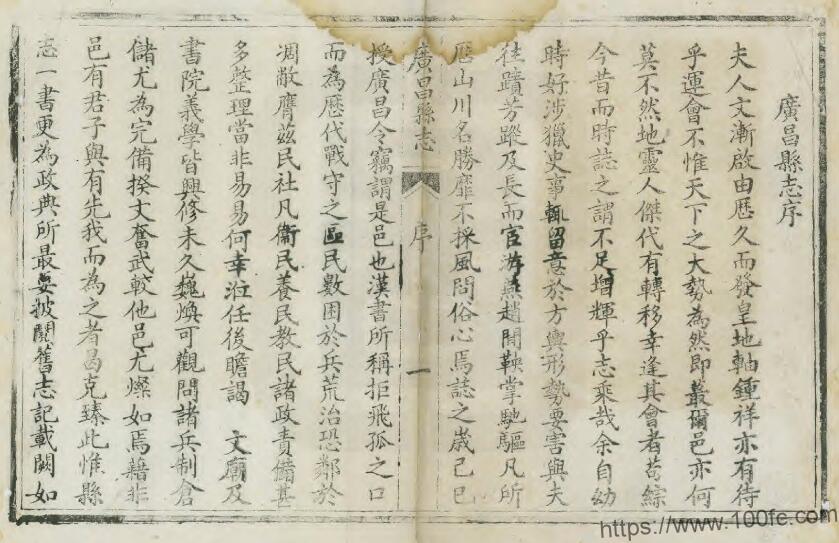 廣昌縣志序
夫人文漸啟由歷久而發皇地軸鍾祥亦有待
乎運會不惟天下之大勢為然即蕞爾邑亦何
莫不然地靈人傑代有轉移幸逢其會者苟綜
今昔而時誌之謂不足增輝乎志乘哉余自幼
時好涉獵史事輒留意於方輿形勢要害與夫
往蹟芳蹤及長而宦游燕趙聞鞅掌馳驅凡所
歷山川名勝靡不採風問俗心焉誌之歲己巳
廣昌縣志
序
一
授廣昌令竊謂是邑也漢書所稱拒飛孤之口
而為歷代戰守之區民數困於兵荒治恐鄰於
凋敝膺茲民社凡衞民養民教民諸政責備甚
多整理當非易易何幸涖任後瞻謁 文廟及
書院義學皆興修未久巍煥可觀問諸兵制倉
儲尤為完備揆文奮武較他邑尤燦如焉藉非
邑有君子與有先我而為之者曷克臻此惟縣
志一書更為政典所最要披閱舊志記載闕如
https://www.100fc.com